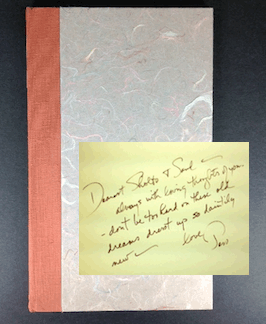 Dearest Sholto & Saul —
always with loving thoughts of you
- don't be too hard on these old
dreams drest up so daintily
new —
love,